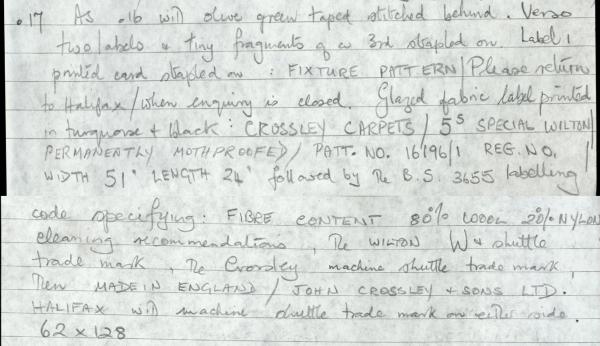 .17 As .16 with olive green taped stitched behind. Verso
two labels & tiny fragments of a 3rd stapled on. Label 1
printed card stapled on : FIXTURE PATTERN / Please return
to Halifax / when enquiry is closed. Glazed fabric label printed
in turquoise & black : CROSSLEY CARPETS / 5S SPECIAL WILTON /
PERMANENTLY MOTHPROOFED / PATT. NO. 16196/1 REG. NO. /
WIDTH 51" LENGTH 24" followed by the B.S. 3655 labelling
code specifying : FIBRE CONTENT 80% WOOL 20% NYLON
cleaning recommendations, The WILTON W & shuttle
trade mark, The Crossley machine shuttle trade mark,
Then MADE IN ENGLAND / JOHN CROSSLEY & SONS LTD.
HALIFAX with machine shuttle trade mark on either side.
62 x 128